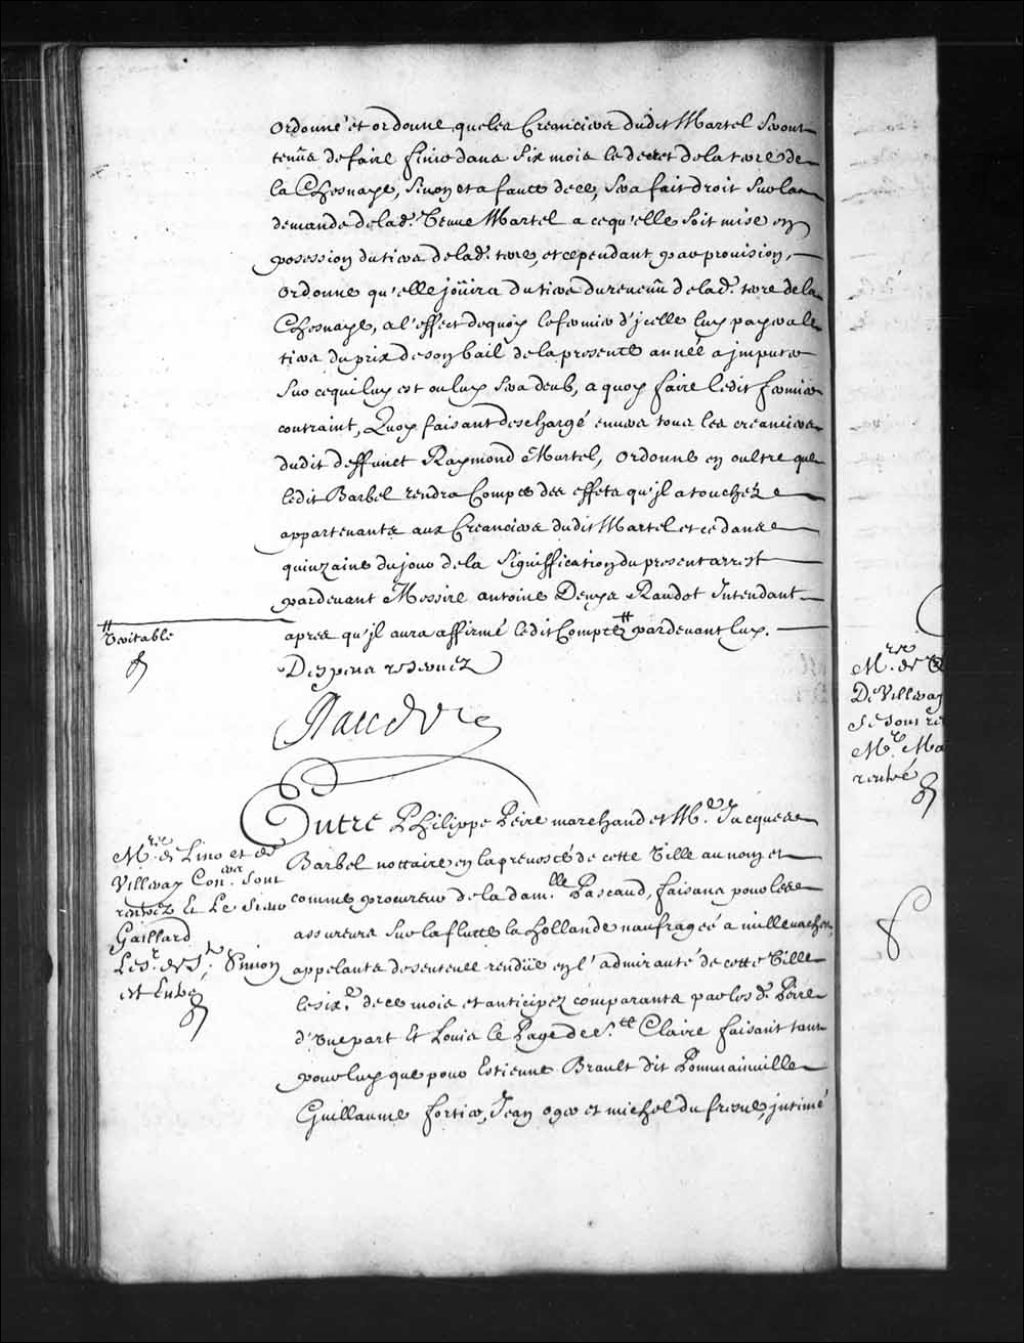 ordonné et ordonne que les Creanciers dudit Martel seront
tenüs de faire finir dans six mois le decret de la terre de
la Chesnaye, sinon et a faute de ce, sera fait droit sur la
demande de lad.e Veuve Martel a ce qu'elle soit mise en
posession du tiers de lad.e terre, et cependant par provision,
ordonne qu'elle joüira du tiers du revenu de lad.e terre de la
Chesnaye, a l'effect de quoy le fermier d'jcelle luy payera le
tiers du prix de son bail de la presente année a jmputer
sur ce qui luy est ou luy sera deub, a quoy faire ledit fermier
contraint, Quoy faisant deschargé envers tous les creanciers
dudit deffunct Raymond Martel, ordonne en oultre que
ledit Barbel rendra Compte des effets qu'jl a touchéz
appartenants aux Creanciers dudit Martel et ce dans
quinzaine du jour de la signiffication du present arrest
pardevant Messire antoine Denys Raudot Intendant
apres qu'jl aura affirmé ledit Compte # pardevant luy.
# Veritable
Despens reservez
Raudot
Entre Philippe Peire marchand et M.e Jacques
Barbel nottaire en la prevosté de cette Ville au nom et
comme procureur de la dam.lle Pascaud, faisans pour les
assureurs sur la flutte la hollande naufragéé a millevaches,
appelants de sentence rendüe en l'admirauté de cette Ville
le six.e de ce mois et anticipez comparants par led. Peire
d'une part Et Louis le Page de S.te Claire faisant tant
pour luy que pour Estienne Brault dit Pommainville
Guillaume fortier, Jean oger et michel du fresne, jntimé
M.rs de Lino et de
Villeray Con.ers sont
rentrez Et Le Sieur
Gaillard
Le S.r de S.t Simon
est Entré
M.rs de
De Villeray
se sont re
M.e Ma
rentré